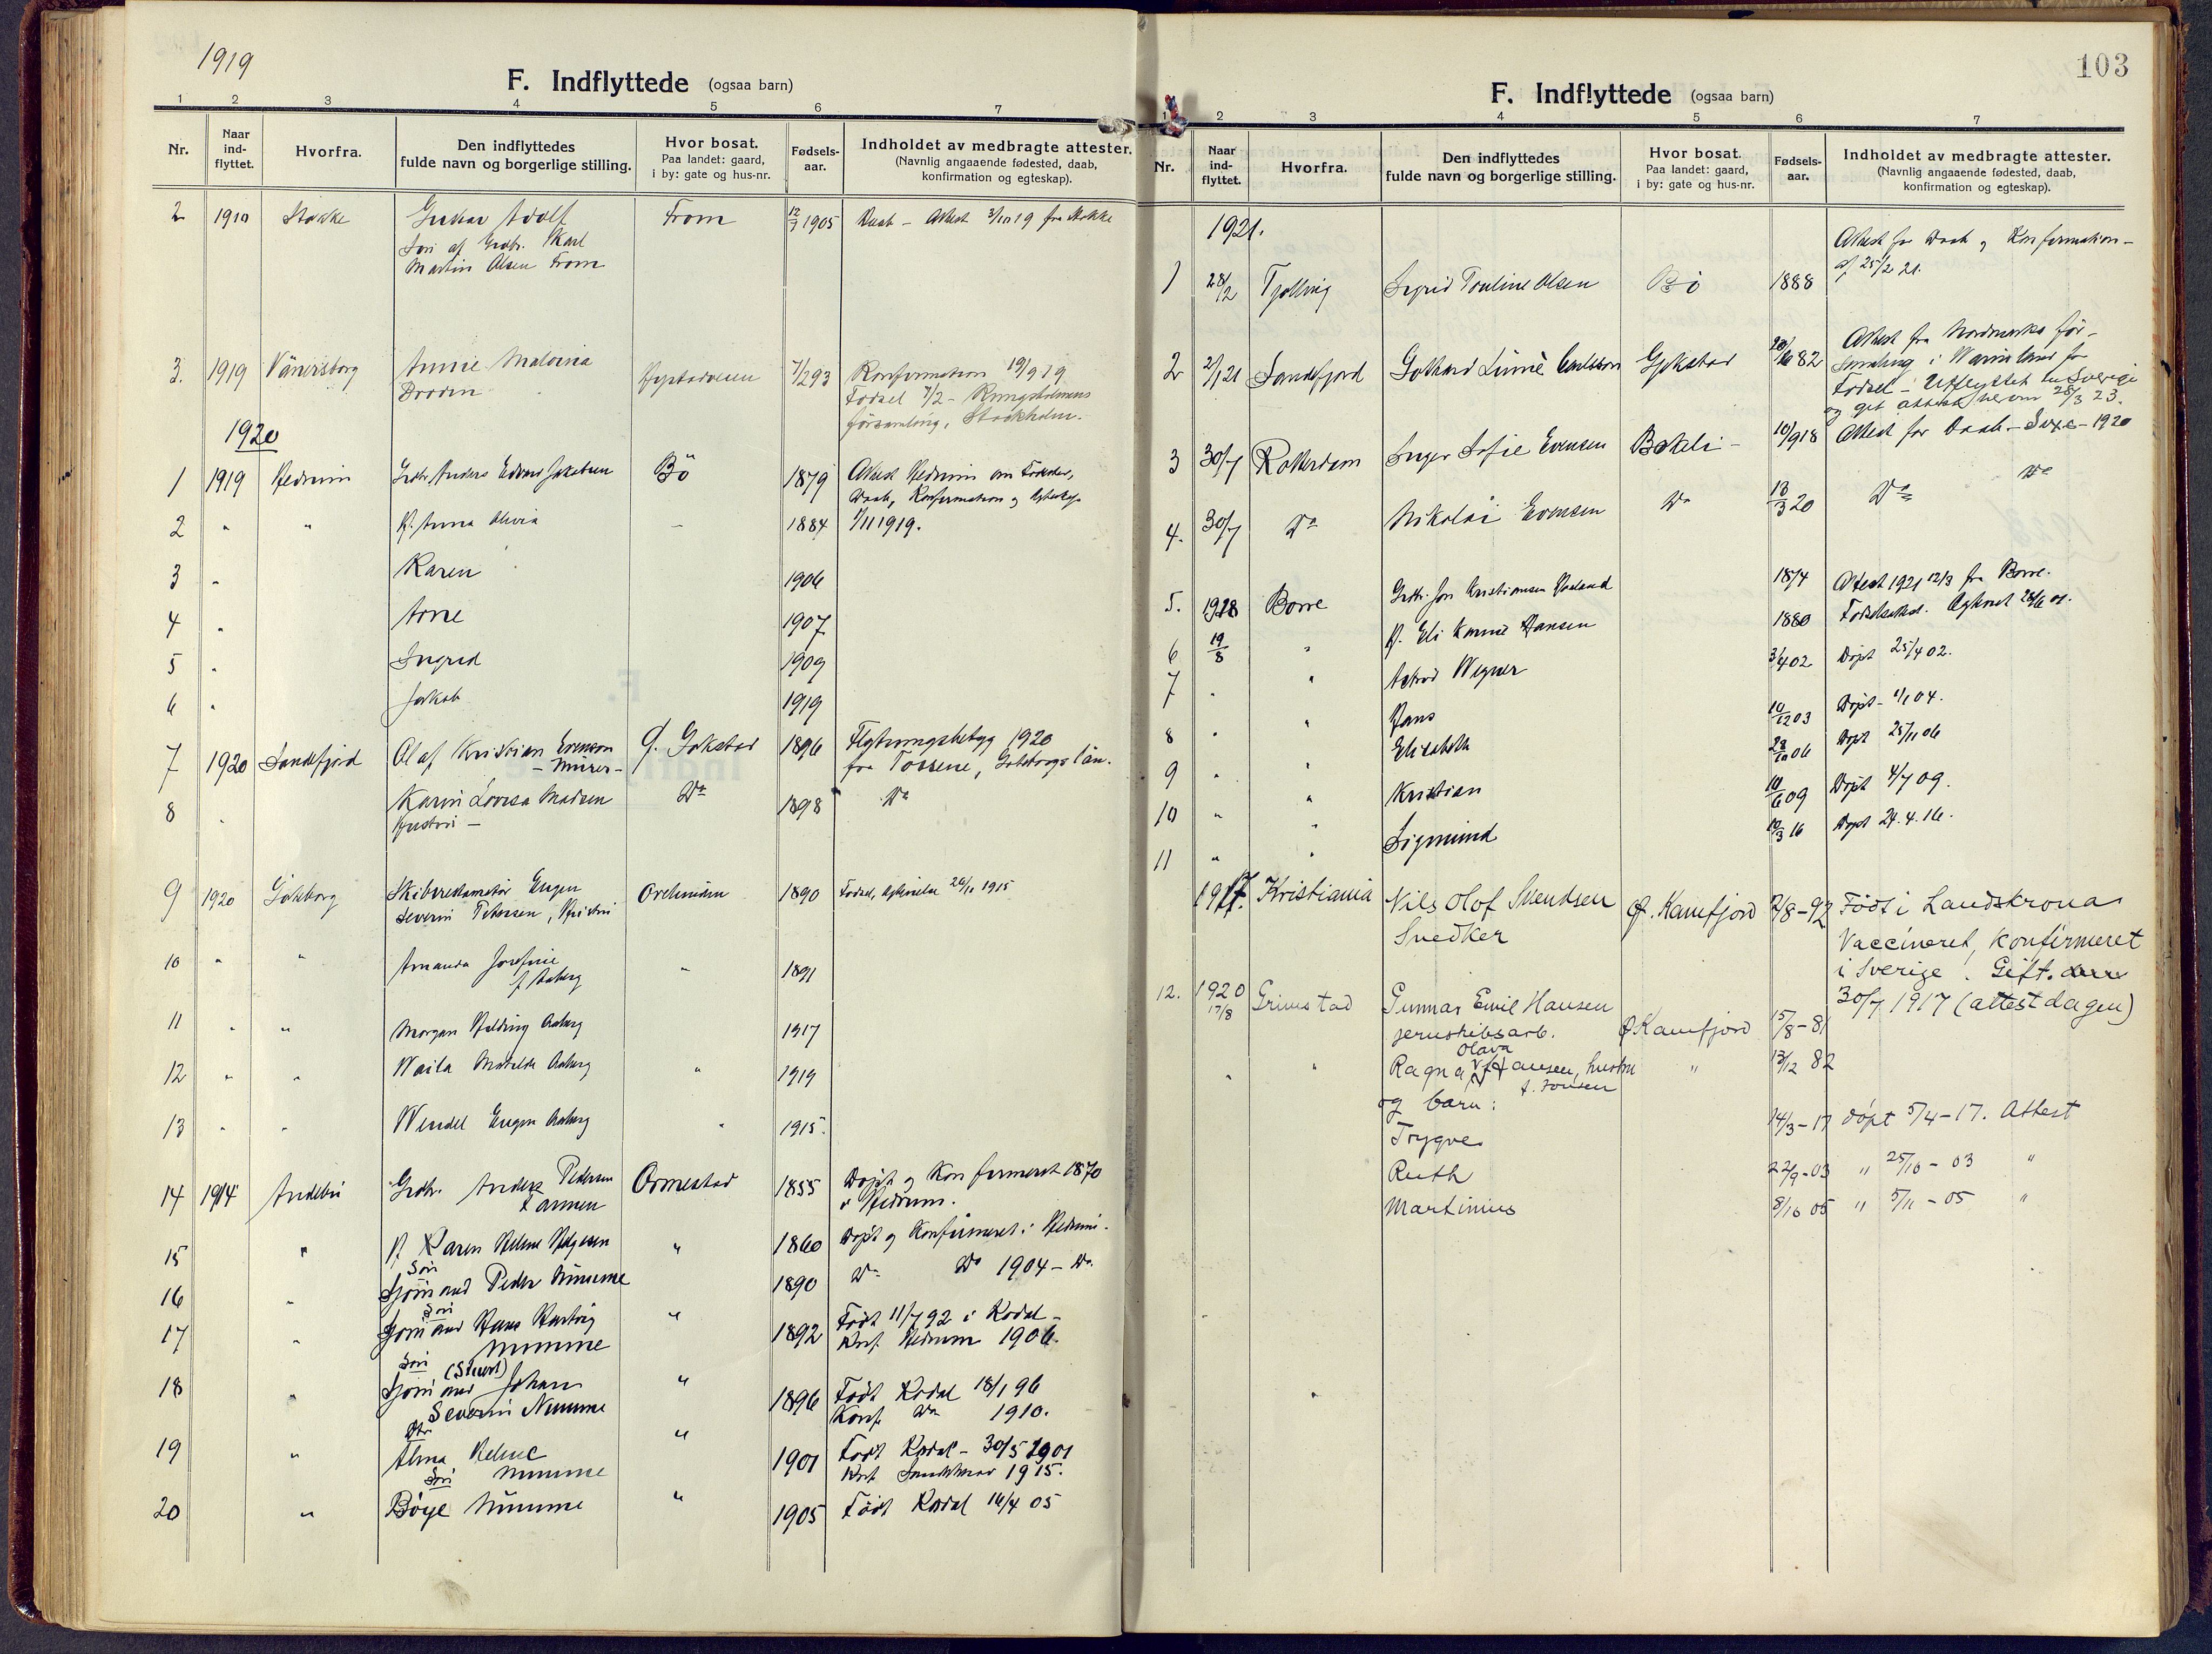 1919
F. Indflyttede (ogsaa barn)
1 2 3 4 5 6 7
Nr.
Naar ind-flyttet.
Hvorfra.
Den indflyttedes fulde navn og borgerlige stilling.
Hvor bosat. Paa landet: gaard, i by: gate og hus-nr.
Fødsels-aar.
Indholdet av medbragte attester. (Navnlig angaaende fødested, daab, konfirmation og egteskap).
2 1919 Stokke Adolf From 12/7 1905 Daab - Attest 3/10 19 fra Stokke
Søn af Grdbr.
Martin Olsen From
3. 1919 Vänersborg Annie Malvina 7/2 93 Konfirmation 19/9 19
Fødsel 7/2 - Kungsholmens
församling, Stockholm.
1920
1 1919 Hedrum Grdbr. Anders Edvard Jakobsen Bö 1879 Attest Hedrum om Fødsler,
Daab, Konfirmation og
2 " " H. Anna Olivia - 1884 1/11 1919.
3 " Karen 1906
4 " Arne 1907
5 " Ingrid 1909
6 " Jakob 1919
7 1920 Sandefjord Olaf Kristian Evenson Ø. Gokstad 1896 Flytningsbetyg 1920
- Murer - fra Tossene, Göteborgs län.
8 " Karin Lovisa Madsen Do 1898 Do
Hustru -
9 1920 Göteborg Eugen 1890 Fødsel, 26/11 1915
Severin Petersen,
10 " " Amanda Josefine " 1891
f. Aaberg
11 " " Morgan Aaberg 1917
12 " " Matilde Aaberg " 1919
13 " " Wendel Eugen Aaberg " 1915.
14 1914 Andebu Grdbr. Anders Pedersen Ormestad 1855 Døpt og Konfirmeret 1870
i Hedrum.
15 " H. Karen Helene Helgesen " 1860 Døpt og Konfirmeret i Hedrum.
16 " Søn Sjømand Peder Nimme 1890 Do Do 1904 - Do.
17 " Søn Sjømand Hans Hartvig " 1892 Født 11/7 92 i Kodal -
Nimme Konf. Hedrum 1906.
18 " Søn (Stuert) Sjømand Johan " 1896 Født Kodal 18/1 96
Severin Nimme Konf. Do 1910.
19 " Dtr Alma Helene " 1901 Født Kodal - 30/5 1901
Nimme Konf. Sandeherred 1915.
20 " Søn Böye Nimme " 1905 Født Kodal 16/4 05
103
F. Indflyttede (ogsaa barn)
1 2 3 4 5 6 7
Nr.
Naar ind-flyttet.
Hvorfra.
Den indflyttedes fulde navn og borgerlige stilling.
Hvor bosat. Paa landet: gaard, i by: gate og hus-nr.
Fødsels-aar.
Indholdet av medbragte attester. (Navnlig angaaende fødested, daab, konfirmation og egteskap).
1921.
Attest for Daab og Konfirmation -
af 25/2 21.
1 28/2 Tjølling Sigrid Pouline Olsen Bö 1888
2 2/1 21 Sandefjord Gothard Linné Carlsson Gokstad 82 Attest fra Nordmarks för-
samling i Wärmland for
Fødsel - Utflyttet til Sverige
og git attest herom 28/3 23.
3 30/7 Rotterdam Inger Sofie Evensen 10/9 18 Attest for Daab - 1920
4. 30/7 Do Nikolai Evensen Do 13/3 20 Do Do
5. 1918 Borre Grdbr. Jon Kristiansen 1874 Attest 1921 12/3 fra Borre.
6 19/8 " H. Eli Hansen 1880
7 " " Astrid Wegner 3/4 02 Døpt 25/4 02.
8 " " Hans 10/12 03 Døpt - 1/1 04.
9 " " Elisabeth 28/10 06 Døpt 25/11 06
10 " " Kristian 10/6 09 Døpt 4/7 09.
11 " " Sigmund 10/3 16 Døpt 24.4.16.
1917. Kristiania Nils Olof Svendsen Ø. Kamfjord 2/8-92 Født i Landskrona
Snedker Vaccineret, konfirmeret
i Sverige. Gift.
30/7 1917 (attest dagen)
12. 1920 17/8 Grimstad Gunnar Emil Hansen Ø Kamfjord 15/8-81
jernskibsarb.
" " Ragna Olava Hansen, hustru " 13/12 82
f. Jonsen
og barn:
Trygve 14/3-17 døpt 5/4-17. Attest
Ruth 22/9-03 " 25/10-03 "
Martinius 8/10 05 " 5/11-05 "